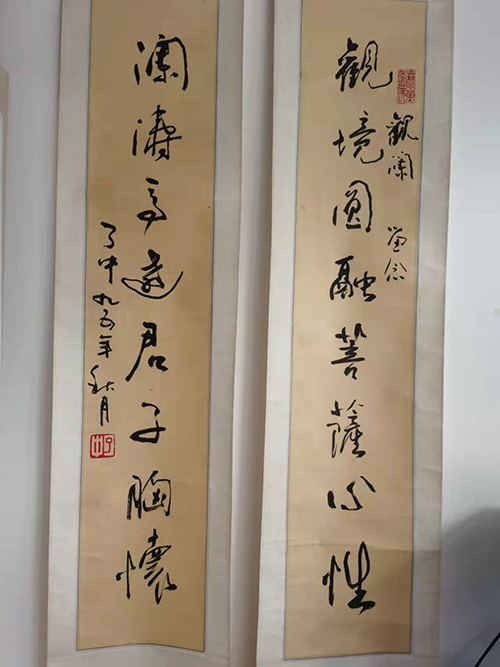 觀境圓融菩薩心性
觀瀾 留念
瀾濤高遠君子胸懷
了中九五年秋月